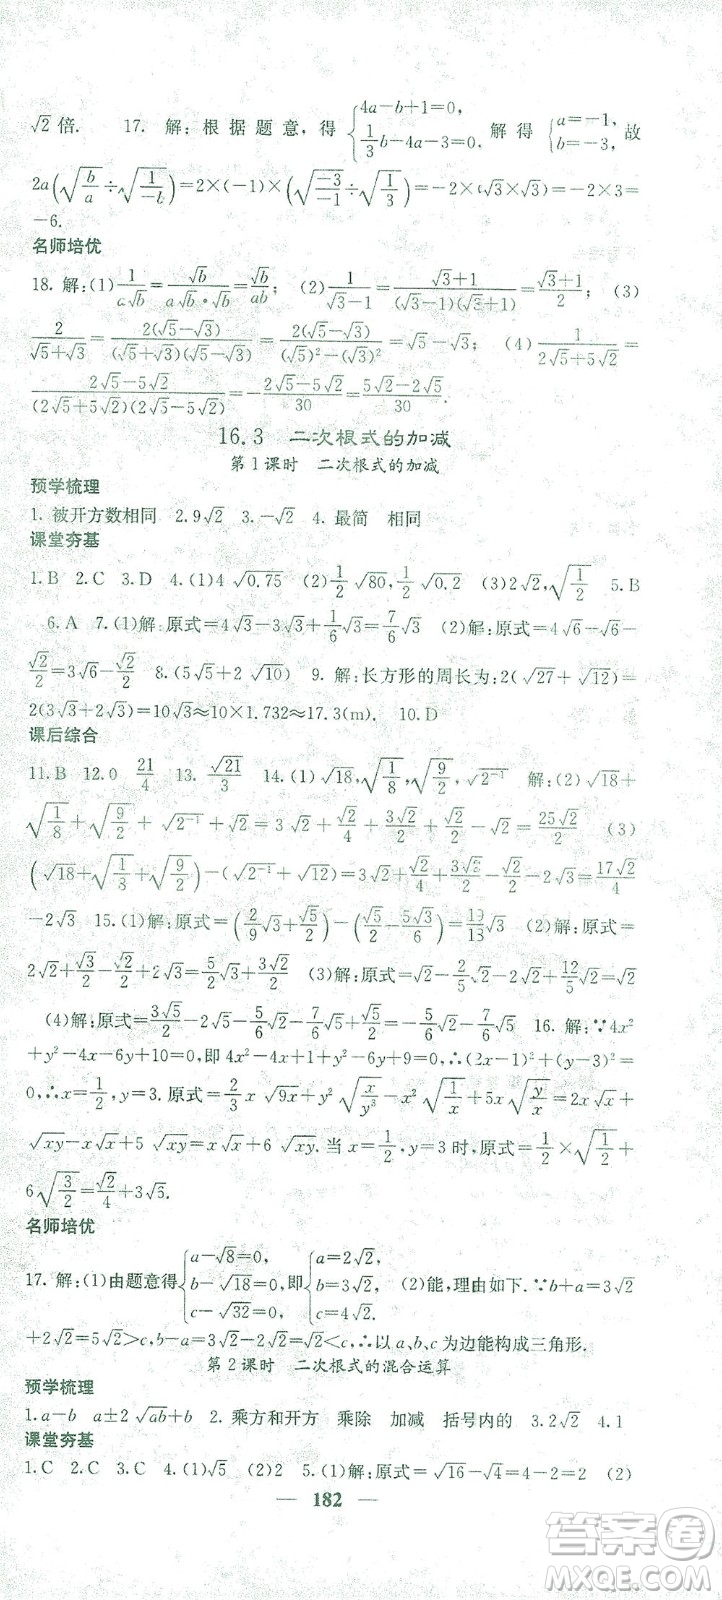 √2 倍. 17. 解:根据题意,得{4a-b+1=0, 1/3 b-4a-3=0, 解得{a=-1, b=-3, 故
2a(√(b/a)÷√(1/-b))=2×(-1)×(√(-3/-1)÷√(1/3))=-2×(√3×√3)=-2×3=
-6.
名师培优
18. 解:(1) 1/(a√b)=√b/(a√b·√b)=√b/(ab); (2) 1/(√3-1)=(√3+1)/((√3-1)(√3+1))=(√3+1)/2; (3)
2/(√5+√3)=2(√5-√3)/((√5+√3)(√5-√3))=2(√5-√3)/((√5)²-(√3)²)=√5-√3; (4) 1/(2√5+5√2)=
(2√5-5√2)/((2√5+5√2)(2√5-5√2))=(2√5-5√2)/(-30)=(5√2-2√5)/30.
16.3 二次根式的加减
第1课时 二次根式的加减
预学梳理
1. 被开方数相同 2. 9√2 3. -√2 4. 最简 相同
课堂夯基
1. B 2. C 3. D 4. (1) 4√0.75 (2) 1/2√80, 1/2√0.2 (3) 2√2, √(1/2) 5. B
6. A 7. (1)解:原式=4√3-3√3+1/6√3=7/6√3 (2)解:原式=4√6-√6-
√2/2=3√6-√2/2 8. (5√5+2√10) 9. 解:长方形的周长为:2(√27+√12)=
2(3√3+2√3)=10√3≈10×1.732≈17.3(m). 10. D
课后综合
11. B 12. 0 21/4 13. √21/3 14. (1) √18, √(1/8), √(9/2), √(2⁻¹) 解:(2) √18+
√(1/8)+√(9/2)+√(2⁻¹)+√2=3√2+√2/4+3√2/2+√2/2+√2=25√2/4 (3)
(√18+√(1/8)+√(9/2))-(√(2⁻¹)+√12)=3√2+√2/4+3√2/2-√2/2-2√3=17√2/4
-2√3 15. (1)解:原式=(2/9√3+√5/2)-(√5/2-5√3/6)=19/18√3 (2)解:原式=
2√2+√3/2-√2/2+2√3=5/2√3+3√2/2 (3)解:原式=√2-2/5√5-2√5+12/5√5=√2
(4)解:原式=3√5/2-2√5-5/6√2-2/3√5=-5/6√2-7/6√5 16. 解:∵4x²
+y²-4x-6y+10=0,即4x²-4x+1+y²-6y+9=0,∴(2x-1)²+(y-3)²=
0,∴x=1/2,y=3. 原式=2/3x√9x+y²√(x/y³)-x²√(1/x)+5x√(y/x)=2x√x+
√xy-x√x+5√xy=x√x+6√xy. 当x=1/2,y=3时,原式=1/2×√(1/2)+
6√(3/2)=√2/4+3√6.
名师培优
17. 解:(1)由题意得{a-√8=0, b-√18=0, c-√32=0, 即{a=2√2, b=3√2, c=4√2. (2)能,理由如下.∵b+a=3√2
+2√2=5√2>c,b-a=3√2-2√2=√2<c,∴以a、b、c为边能构成三角形.
第2课时 二次根式的混合运算
预学梳理
1. a-b a±2√ab+b 2. 乘方和开方 乘除 加减 括号内的 3. 2√2 4. 1
课堂夯基
1. C 2. C 3. C 4. (1)√5 (2)2 5. (1)解:原式=√16-√4=4-2=2 (2)
182
答案圈
MXQE.COM